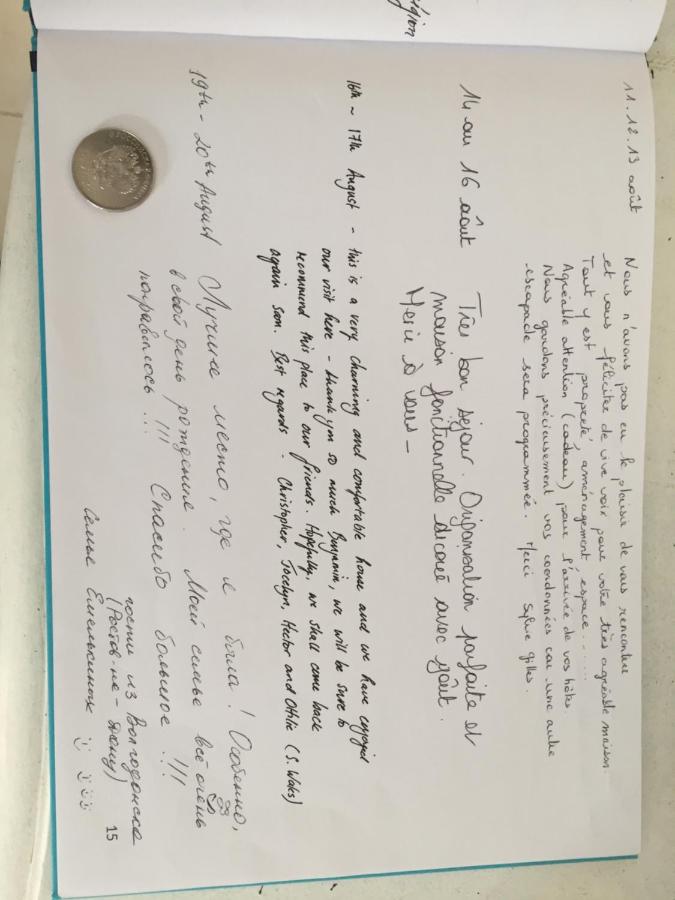 région
11.12.13 août
Nous n'avons pas eu le plaisir de vous rencontrer
et vous féliciter de vive voix pour votre très agréable maison
Tout y est propreté, aménagement espace......
Agréable attention (cadeau) pour l'arrivée de vos hôtes
Nous gardons précieusement vos coordonnées car une autre
escapade sera programmée. Merci Sylvie Gilles.
14 au 16 août
Très bon séjour. Organisation parfaite et
maison fonctionnelle décorée avec goût.
Merci à vous -
16th - 17th August - this is a very charming and comfortable house and we have enjoyed
our visit here - thank you so much Benjamin, we will be sure to
recommend this place to our friends. Hopefully, we shall come back
again soon. Best regards - Christopher, Jocelyn, Hector and Ottilie (S. Wales)
19th - 20th August
Лучшее место, где я была! Особенно,
в свой день рождение. Моей семье всё очень
понравилось !!! Спасибо большое !!!
гости из Волгодонска
(Ростов-на-Дону)
Семья Емелькиных
15